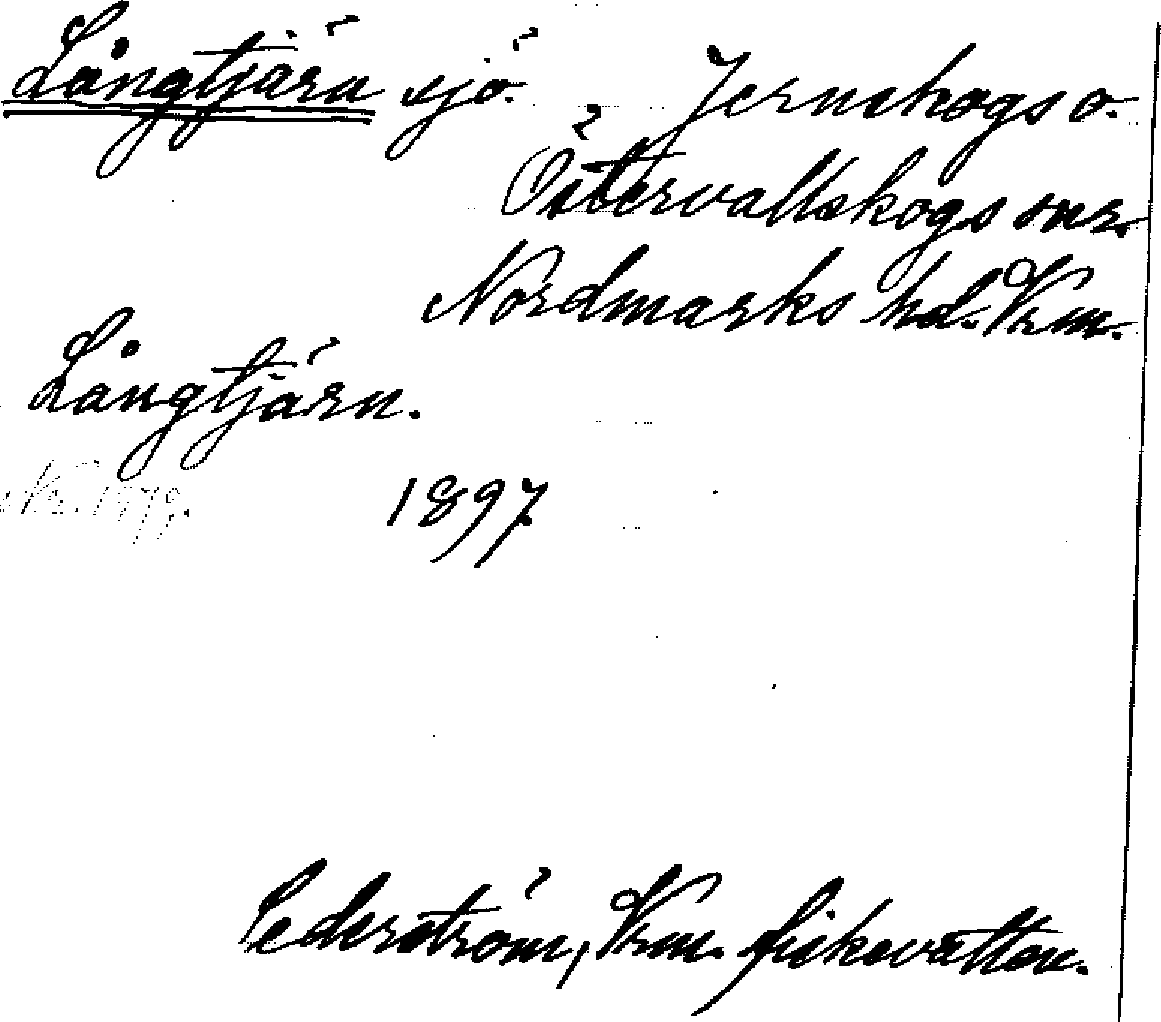 Långtjärn sjö. Jernskogs o.
Östervallskogs snr.
Nordmarks hd. Vrm.
Långtjärn.
1897.
Cederström, Vrm. fiskevatten.